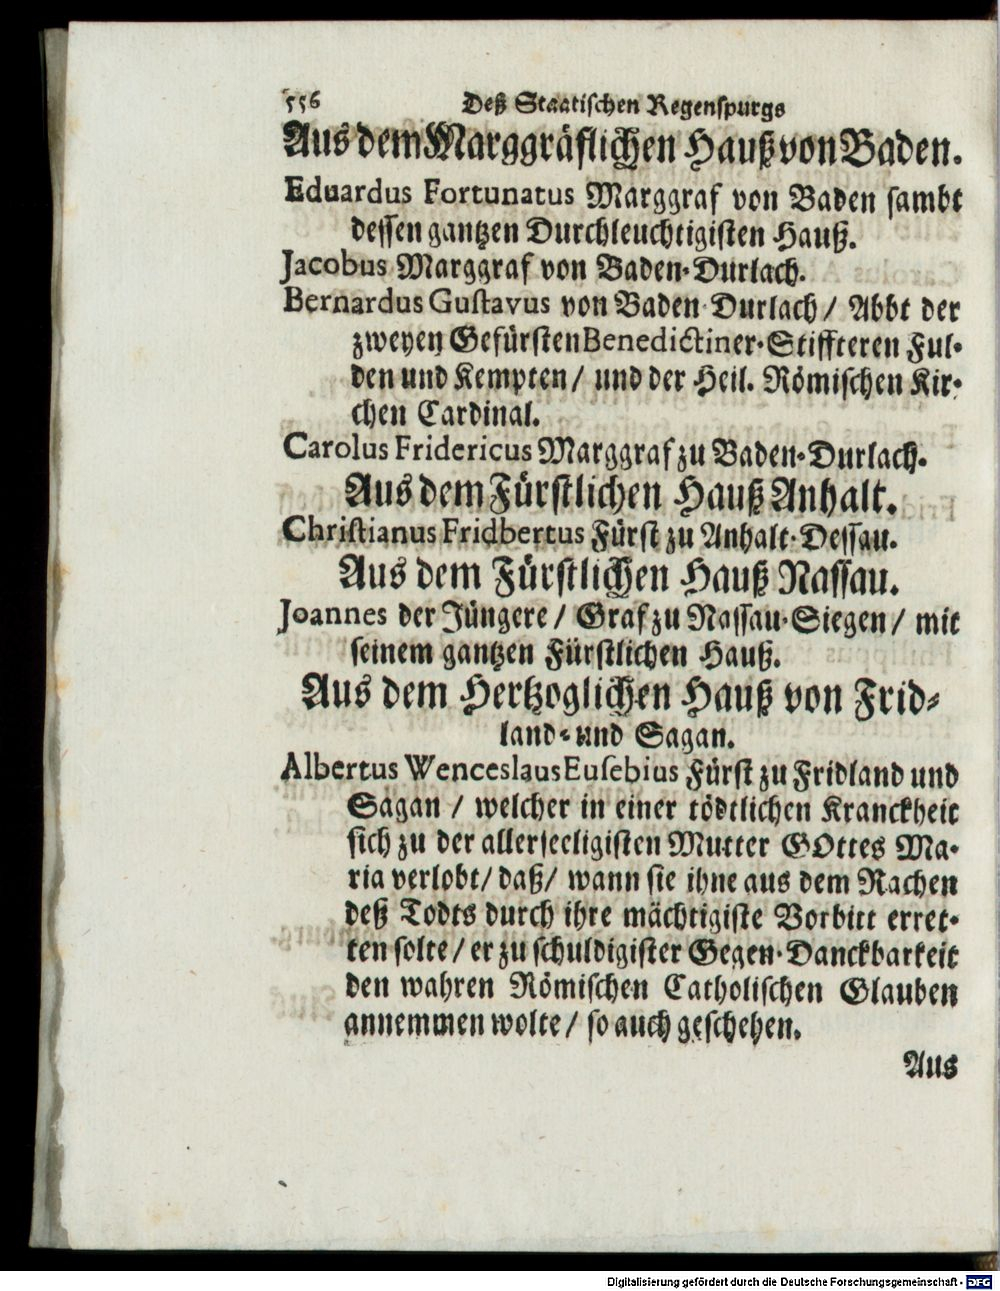 556 Deß Staatischen Regenspurgs
Aus dem Marggräflichen Hauß von Baden.
Eduardus Fortunatus Marggraf von Baden sambt
dessen gantzen Durchleuchtigisten Hauß.
Jacobus Marggraf von Baden-Durlach.
Bernardus Gustavus von Baden-Durlach / Abbt der
zweyen Gefürsten Benedictiner-Stiffteren Ful-
den und Kempten / und der Heil. Römischen Kir-
chen Cardinal.
Carolus Fridericus Marggraf zu Baden-Durlach.
Aus dem Fürstlichen Hauß Anhalt.
Christianus Fridbertus Fürst zu Anhalt-Dessau.
Aus dem Fürstlichen Hauß Nassau.
Joannes der Jüngere / Graf zu Nassau-Siegen / mit
seinem gantzen Fürstlichen Hauß.
Aus dem Hertzoglichen Hauß von Frid-
land- und Sagan.
Albertus Wenceslaus Eusebius Fürst zu Fridland und
Sagan / welcher in einer tödtlichen Kranckheit
sich zu der allerseeligisten Mutter GOttes Ma-
ria verlobt / daß / wann sie ihne aus dem Rachen
deß Todts durch ihre mächtigiste Vorbitt erret-
ten solte / er zu schuldigister Gegen-Danckbarkeit
den wahren Römischen Catholischen Glauben
annemmen wolte / so auch geschehen.
Aus
Digitalisierung gefördert durch die Deutsche Forschungsgemeinschaft - DFG